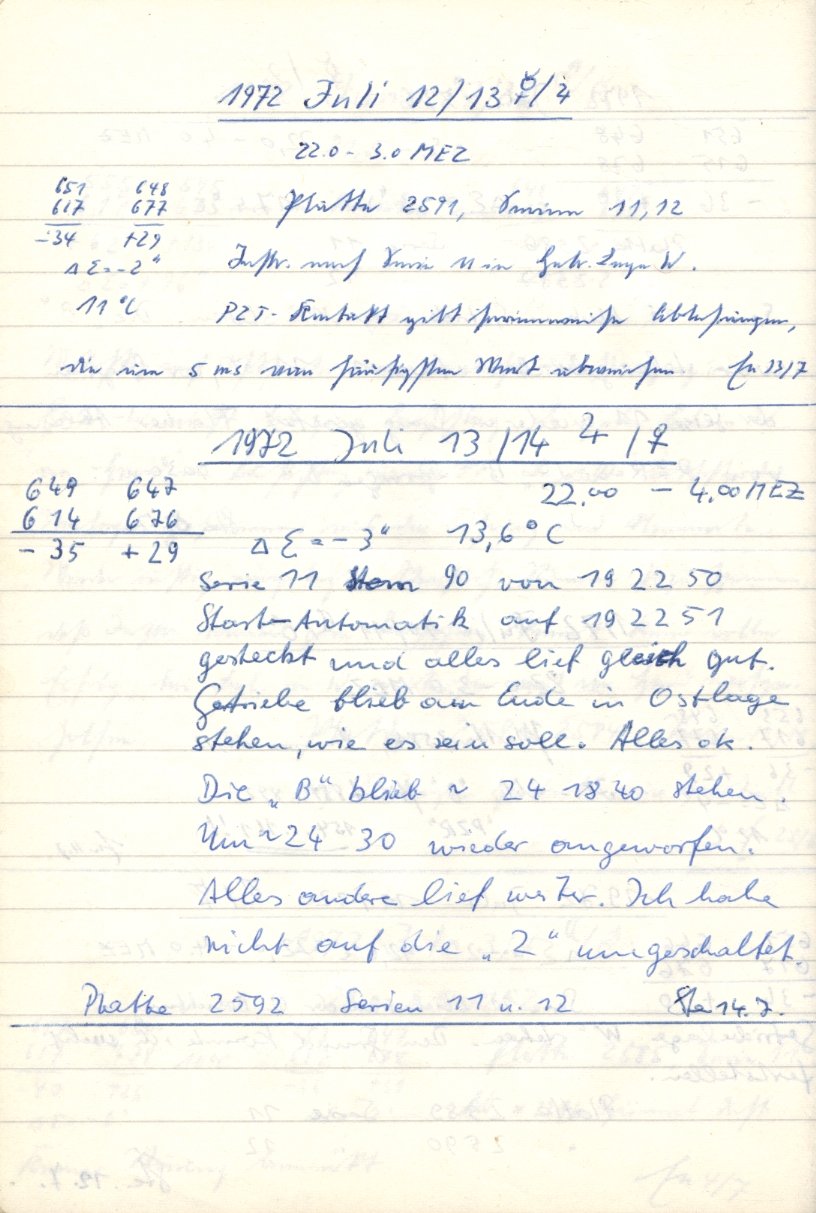 1972 Juli 12/13 ☿/♃
22.0 - 3.0 MEZ
651 648
617 677
-34 +29
Δ Σ = -2"
11 °C
Platte 2591, Serien 11, 12
Instr. nach Serie 11 in Getr. Lage W.
PZT-Kontakt gibt Ablesungen,
die um 5 ms vom häufigsten Wert abweichen 13/7
1972 Juli 13/14 ♃/♀
22.00 - 4.00 MEZ
649 647
614 676
- 35 + 29
Δ Σ = - 3" 13,6° C
Serie 11 Stern 90 von 19 22 50
Start-Automatik auf 19 22 51
gesteckt und alles lief gleich gut.
Getriebe blieb am Ende in Ostlage
stehen, wie es sein soll. Alles ok.
Die „B" blieb ~ 24 18 40 stehen.
Um ~ 24 30 wieder angeworfen.
Alles andere lief weiter. Ich habe
nicht auf die „2" umgeschaltet.
Platte 2592 Serien 11 u. 12 14.7.